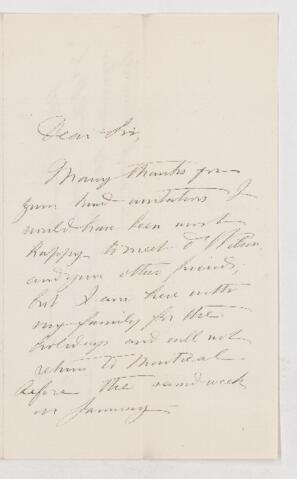 Dear Sir,
Many thanks for
your kind invitation I
would have been most
happy to meet Dr Wilson
and your other friends,
but I am here with
my family for the
holidays and will not
return to Montreal
before the second week
in January